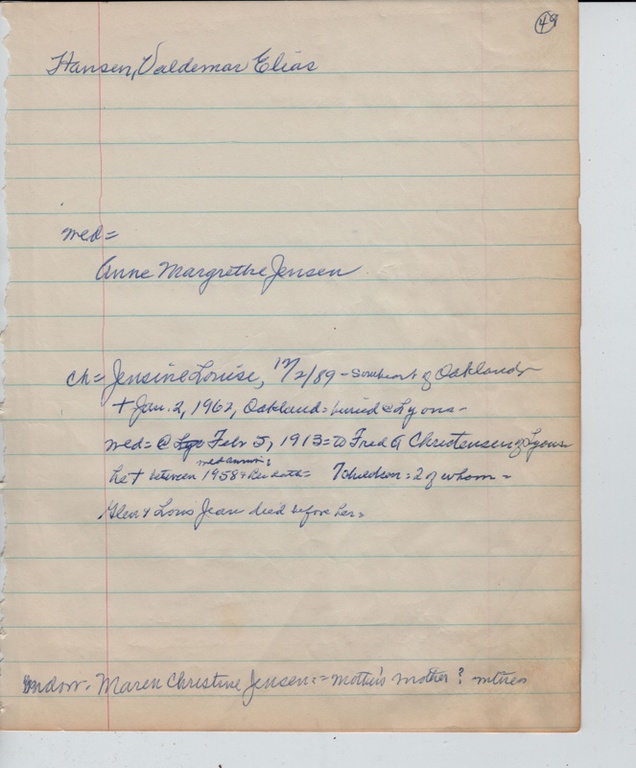 49
Hansen, Valdemar Elias
wed=
Anne Margrethe Jensen
ch= Jensine Louise, 12/2/89 - of Oakland
+ Jan. 2, 1962, Oakland = buried @ Lyons -
wed= @ Feb 5, 1913 = to Fred A Christensen of Lyons
he + between 1958 & her death = 7 children = 2 of whom -
Glen & Lois Jean died before her =
Maren Christine Jensen = mother's mother?